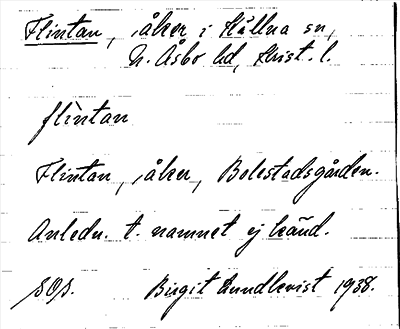 Flintan, åker i Hållna sn,
N. Åsbo hd, Krist. l.
flintan
Flintan, åker, Bolestadsgården.
Anledn. t. namnet ej känd.
SOS. Birgit Lundkvist 1938.